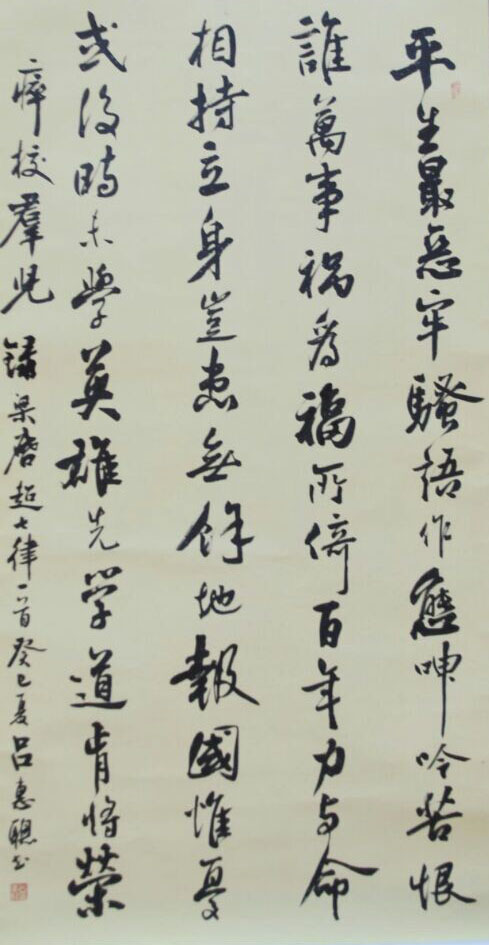 平生最惡牢騷語作態呻吟苦恨
誰萬事禍為福所倚百年力与命
相持立身豈患無餘地報國惟憂
或後時未學英雄先学道肯將榮
瘁校羣兒 錄梁啓超七律一首癸巳夏吕惠聰书